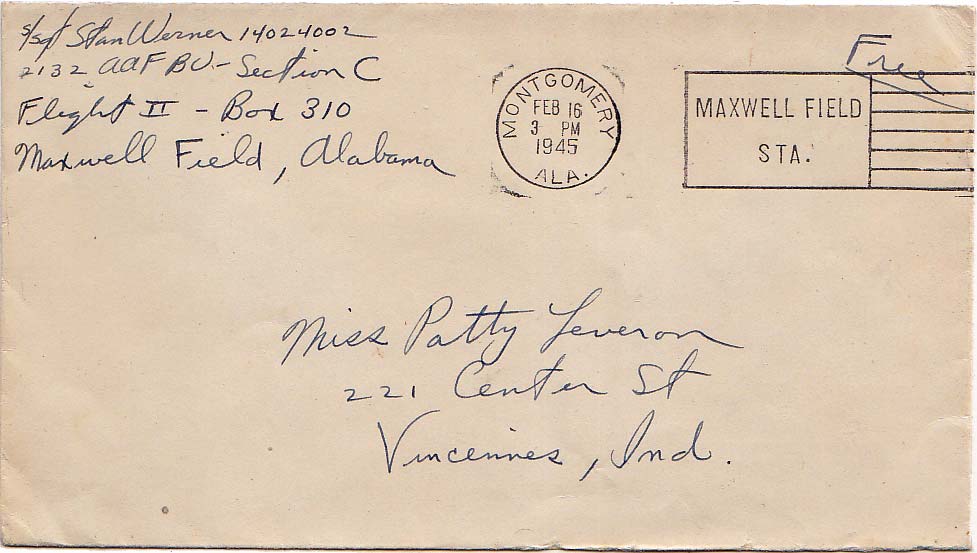 S/Sgt Stan Werner 14024002
2132 AAF BU - Section C
Flight II - Box 310
Maxwell Field, Alabama
MONTGOMERY
FEB 16
3 PM
1945
ALA.
MAXWELL FIELD
STA.
Free
Miss Patty Leveron
221 Center St
Vincennes, Ind.